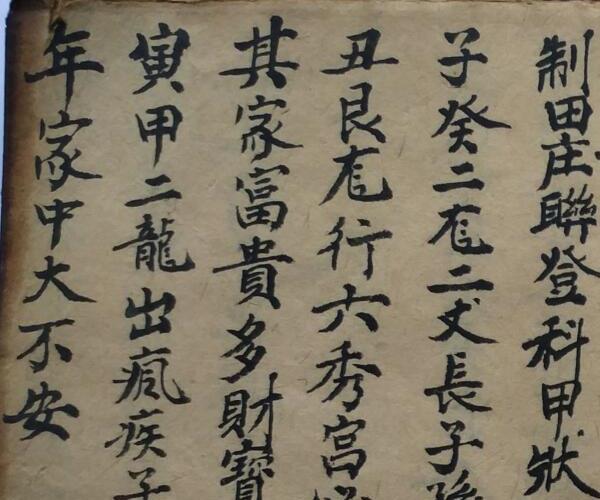 制田庄聯登科甲狀
子癸二龙二丈長子孫
丑艮龙行六秀宫
其家富貴多財寳
寅甲二龍出瘋疾子
年家中大不安